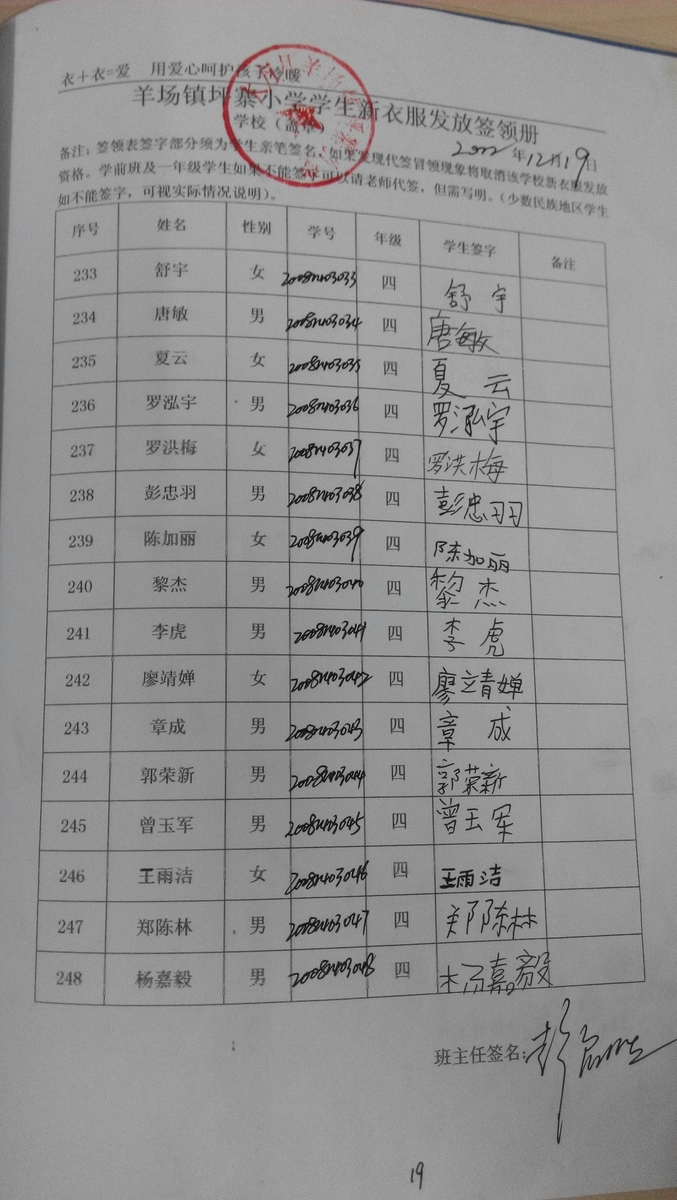 衣+衣=爱 用爱心呵护孩子冷暖
羊场镇坪寨小学学生新衣服发放签领册
学校（盖章
年12月19日
备注：签领表签字部分须为学生亲笔签名，如果发现代签冒领现象将取消该学校新衣服发放
资格。学前班及一年级学生如果不能签字可以请老师代签，但需写明。（少数民族地区学生
如不能签字，可视实际情况说明）。
序号 姓名 性别 学号 年级 学生签字 备注
233 舒宇 女 2008120403033 四 舒宇
234 唐敏 男 四 唐敏
235 夏云 女 四 夏云
236 罗泓宇 男 四 罗泓宇
237 罗洪梅 女 四 罗洪梅
238 彭忠羽 男 四 彭忠羽
239 陈加丽 女 四 陈加丽
240 黎杰 男 四 黎杰
241 李虎 男 四 李虎
242 廖靖婵 女 四 廖靖婵
243 章成 男 四 章成
244 郭荣新 男 四 郭荣新
245 曾玉军 男 四 曾玉军
246 王雨洁 女 四 王雨洁
247 郑陈林 男 四 郑陈林
248 杨嘉毅 男 四 杨嘉毅
班主任签名：
19